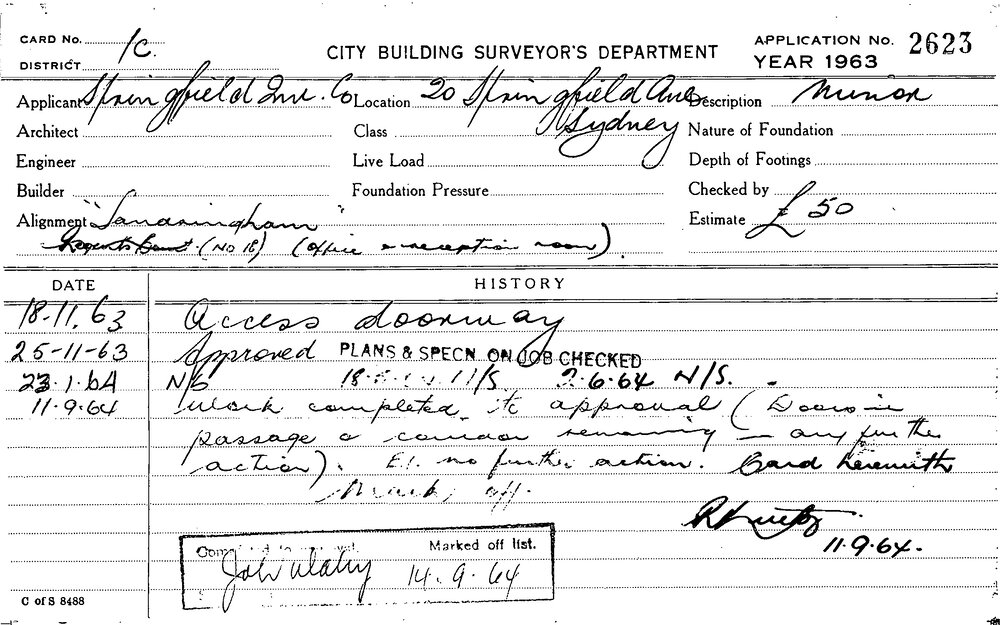 CARD No. 1c.
CITY BUILDING SURVEYOR'S DEPARTMENT
APPLICATION No. 2623
DISTRICT
YEAR 1963
Applicant Springfield Inv. Co Location 20 Springfield Ave Description Minor
Sydney
Architect Class Nature of Foundation
Engineer Live Load Depth of Footings
Builder Foundation Pressure Checked by
Alignment "Sandringham" Estimate £50
(No 18) (office & reception room).
DATE HISTORY
18-11.63 Access doorway
25-11-63 Approved PLANS & SPECN. ON JOB CHECKED
23.1.64 N/S N/S 2.6.64 N/S.
11.9.64 Work completed to approval (Doors in
passage & corridor remaining - any further
action). E.I. no further action. Card herewith
Mark off.
11.9.64.
Completed to approval. Marked off list.
14.9.64
C of S 8488